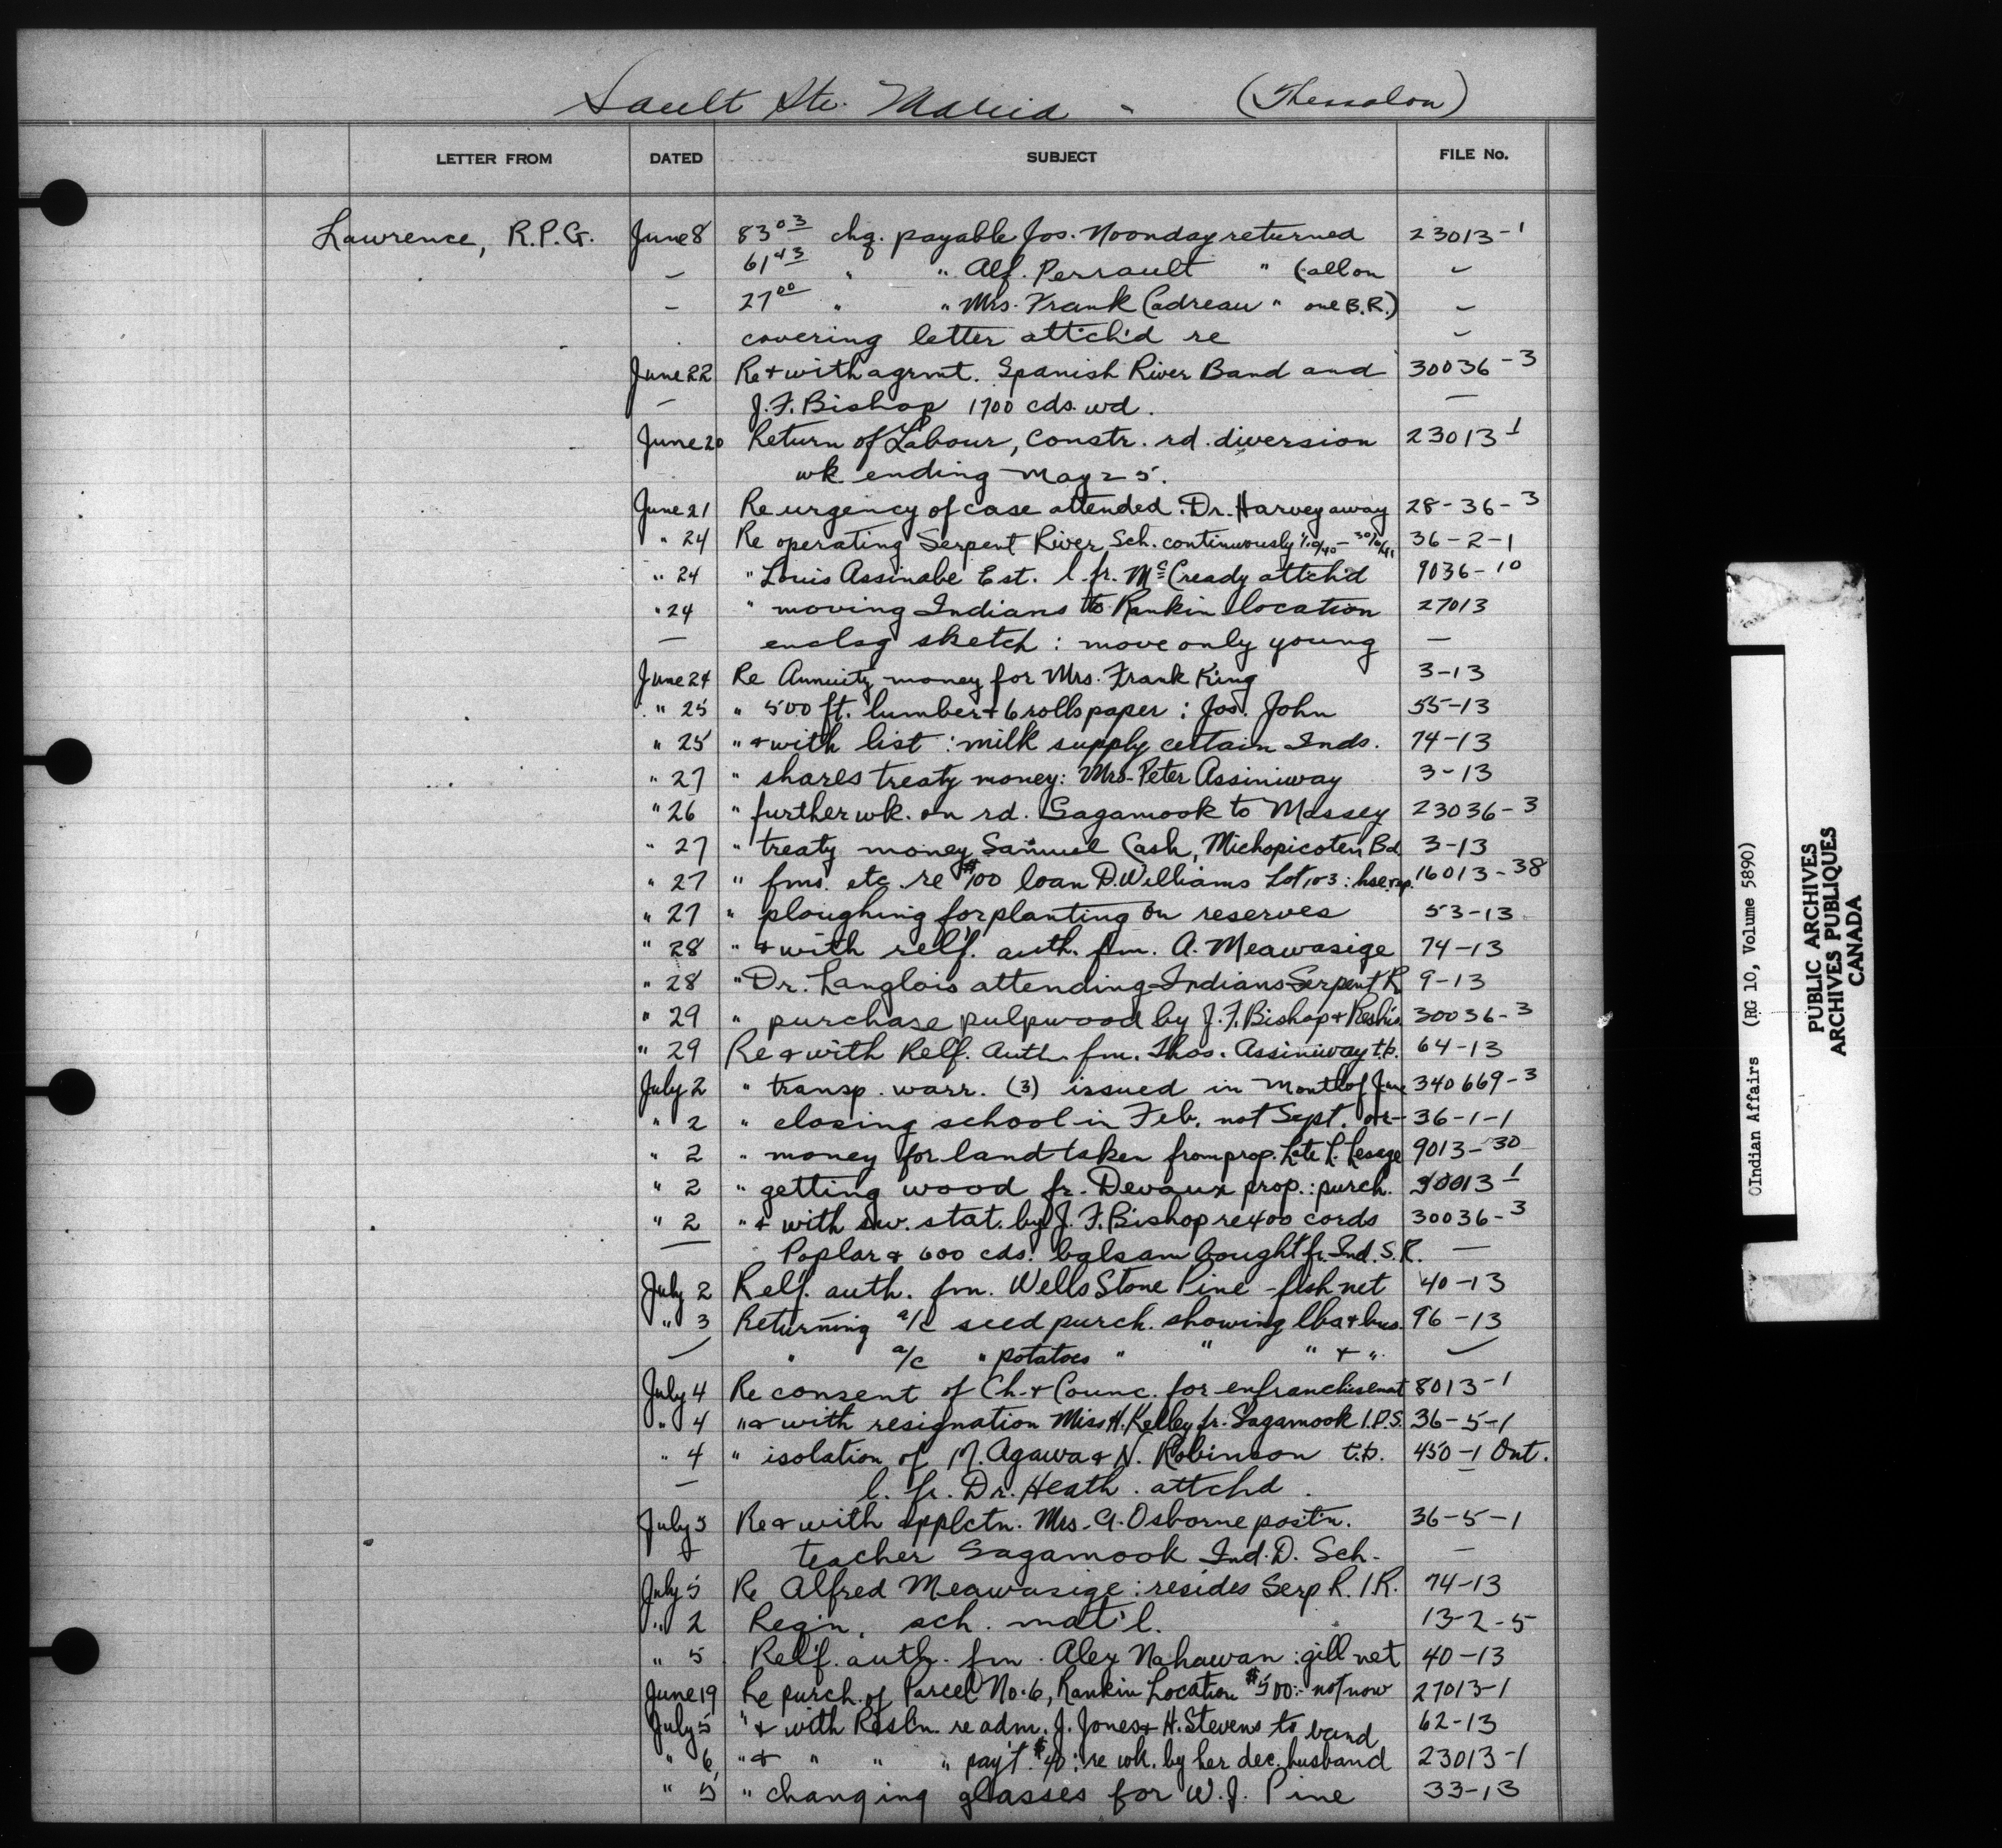 Sault Ste. Marie - (Thessalon)
LETTER FROM DATED SUBJECT FILE No.
Lawrence, R.P.G. June 8 83 03 chq. payable Jos. Noonday returned 23013-1
— 61 43 " " Alf. Perrault " (all on "
— 27 00 " " Mrs. Frank Cadreau " one B.R.) "
covering letter attch'd re "
June 22 Re & with agrmt. Spanish River Band and 30036-3
— J.F. Bishop 1700 cds. wd. —
June 20 Return of Labour, Constr. rd. diversion 23013-1
wk ending May 25.
June 21 Re urgency of case attended: Dr. Harvey away 28-36-3
" 24 Re operating Serpent River Sch. continuously 36-2-1
" 24 " Louis Assinabe Est. l. fr. McCready attch'd 9036-10
" 24 " moving Indians to Rankin location 27013
— enclsg sketch: move only young —
June 24 Re Annuity money for Mrs. Frank King 3-13
" 25 " 500 ft. lumber & 6 rolls paper: Jos. John 55-13
" 25 " & with list: milk supply certain Inds. 74-13
" 27 " shares treaty money: Mrs. Peter Assiniway 3-13
" 26 " further wk. on rd. Sagamook to Massey 23036-3
" 27 " treaty money Samuel Cash, Michopicoten Bd. 3-13
" 27 " fms. etc. re $100 loan D. Williams Lot 103: hse rep. 16013-38
" 27 " ploughing for planting on reserves 53-13
" 28 " & with relf. auth. fm. A. Meawasige 74-13
" 28 " Dr. Langlois attending Indians Serpent R 9-13
" 29 " purchase pulpwood by J.F. Bishop & 30036-3
" 29 Re & with Relf. Auth. fm. Thos. Assiniway t.b. 64-13
July 2 " transp. warr. (3) issued in month of June 340669-3
" 2 " closing school in Feb. not Sept. 36-1-1
" 2 " money for land taken from prop. Late L. Lesage 9013-30
" 2 " getting wood fr. Devaux prop.: purch. 30013-1
" 2 " & with sw. stat. by J.F. Bishop re 400 cords 30036-3
— Poplar & 600 cds. balsam bought fr. Ind. S.R. —
July 2 Relf. auth. fm. Wells Stone Pine - fish net 40-13
" 3 Returning a/c seed purch. showing lbs & bus. 96-13
" a/c " potatoes " " " & "
July 4 Re consent of Ch. & Counc. for enfranchisemnt 8013-1
" 4 " & with resignation Miss H. Kelley fr. Sagamook I.D.S. 36-5-1
" 4 " isolation of M. Agawa & N. Robinson t.b. 450-1 Ont.
— l. fr. Dr. Heath. attchd.
July 5 Re & with applctn. Mrs. G. Osborne post'n. 36-5-1
teacher Sagamook Ind. D. Sch. —
July 5 Re Alfred Meawasige: resides Serp R. I.R. 74-13
" 2 Reqn. sch. mat'l. 13-2-5
" 5 Relf. auth. fm. Alex Nahawan: gill net 40-13
June 19 Re purch. of Parcel No. 6, Rankin Location $500: not now 27013-1
July 5 " & with Resln. re adm. J. Jones & H. Stevens to band 62-13
" 6 " & " " " pay't $40: re wk. by her dec. husband 23013-1
" 5 " changing glasses for W.J. Pine 33-13
©Indian Affairs (RG 10, Volume 5890)
PUBLIC ARCHIVES
ARCHIVES PUBLIQUES
CANADA